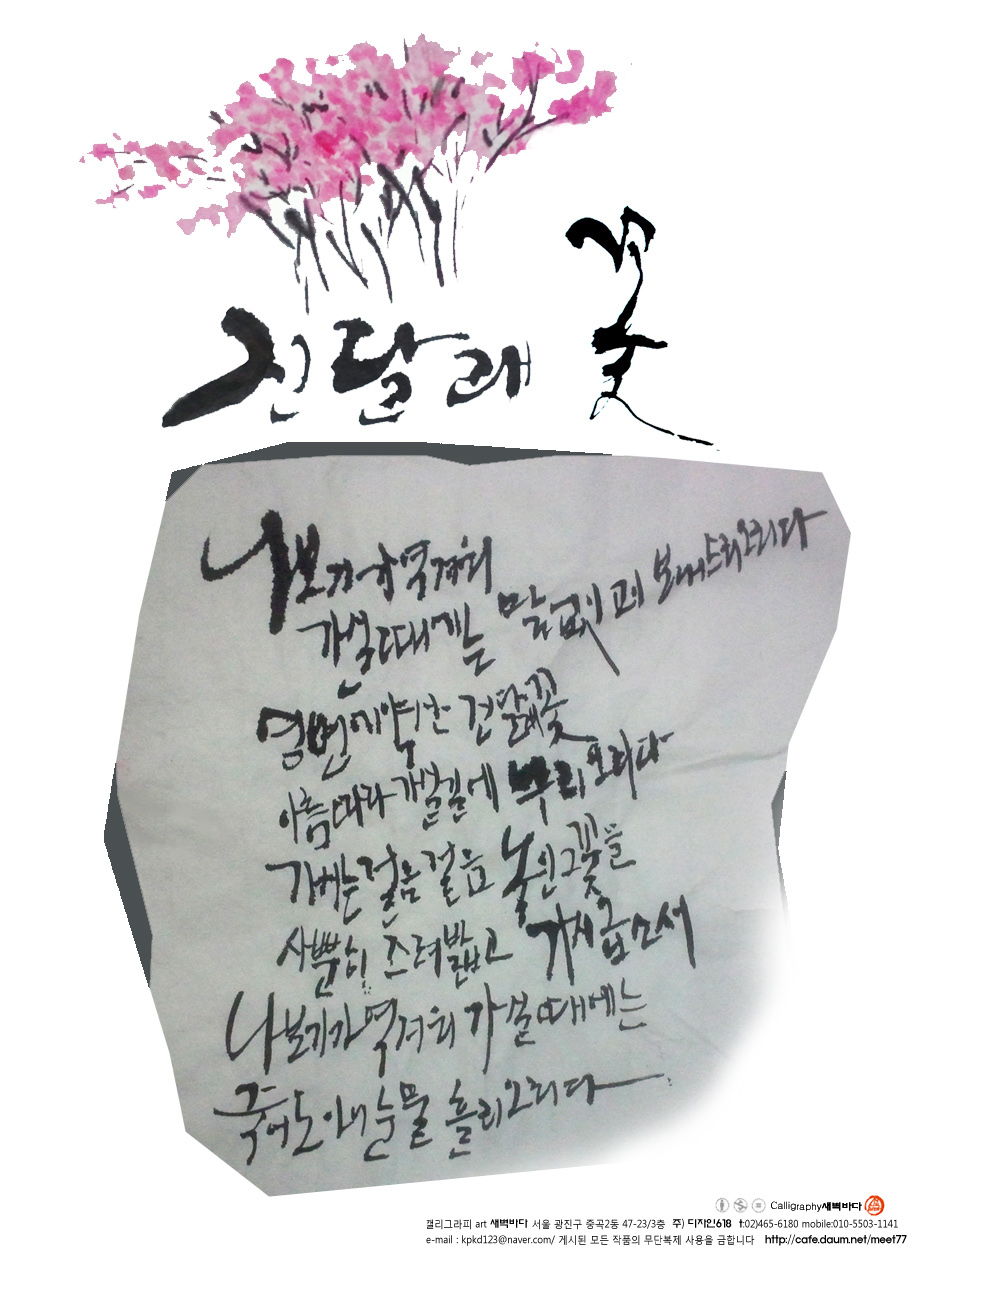 진달래 꽃
나보기가역겨워
가실때에는 말없이 고이 보내드리오리다
영변에약산 진달래꽃
아름따라 가실길에 뿌리오리다
가시는걸음걸음 놓인그꽃을
사뿐히 즈려밟고 가시옵소서
나보기가역겨워 가실때에는
죽어도아니눈물 흘리오리다
Calligraphy새벽바다
캘리그라피 art 새벽바다 서울 광진구 중곡2동 47-23/3층 주) 디자인618 t:02)465-6180 mobile:010-5503-1141
e-mail : kpkd123@naver.com/ 게시된 모든 작품의 무단복제 사용을 금합니다 http://cafe.daum.net/meet77